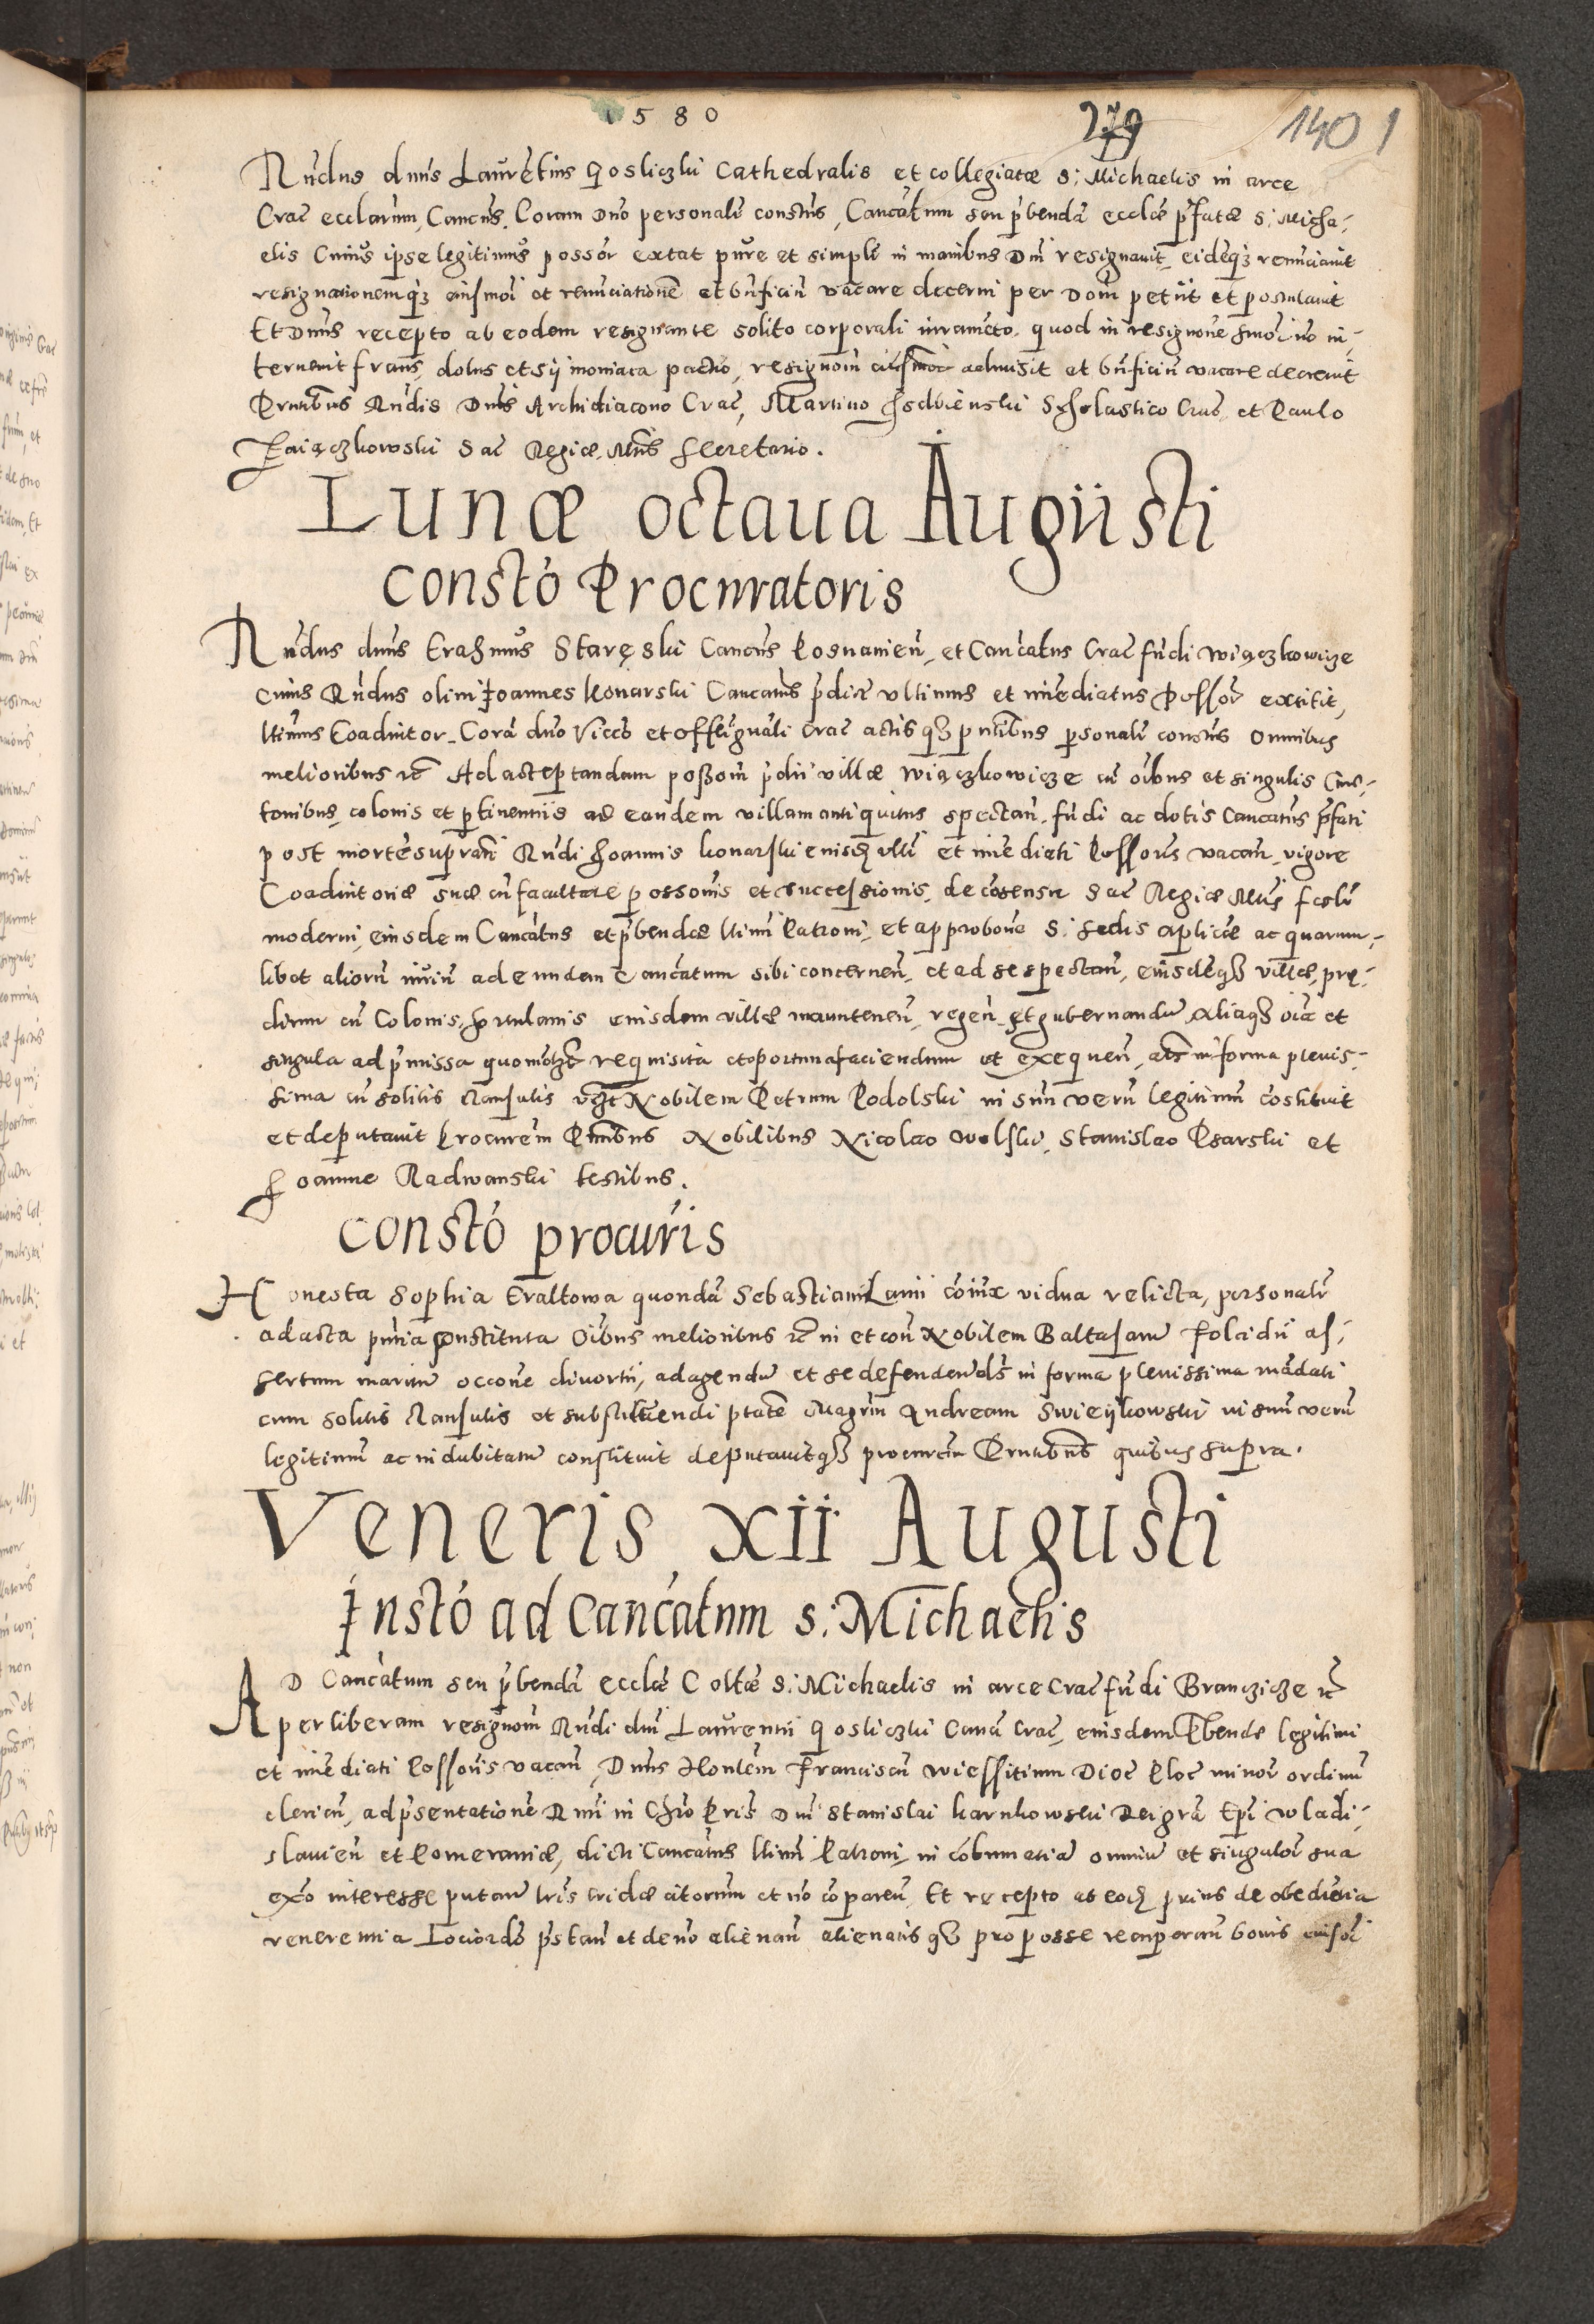 1580
279
140 1
Rndus dnus Laurẽtius Gosliczki Cathedralis et collegiatæ S: Michaelis in arce
Crac ecclarum, Cancus, Coram Dno personalr constus, Cancatum seu pbendã ecclæ pfatæ S: Micha-
elis Cuius ipse legitimus possor extat pure et simplr in manibus Dni resignauit, eidẽq3 renũciauit
resignationemq3 eiusmoi et renũciationẽ et bnficiũ vacare decerni per Dom petiit et postulauit
Et Dnus recepto ab eodem resignante solito corporali iuramẽto, quod in resignone hmoi nõ in-
teruenit fraus, dolus et syimoniaca pactio, resignom eiusmoi admisit et bnficiũ vacare decreuit
Pntibus Rndis Dnis Archidiacono Crac, Martino Isdbienski Scholastico Crac et Paulo
Zaiączkowski Sac Regiæ Mtis Secretario.
Lunæ octaua Augusti
Constõ Procuratoris
Rndus dnus Erasmus Staręski Cancus Posnanien, et Cancatus Crac fũdi Więczkowicze
cuius Rndus olim Joannes Konarski Cancatus pdicti vltimus et imediatus Possor extitit,
ltimus Coadiutor, Corã dno Vicco et Offi gnali Crac actis q3 pntibus psonalr constus Omnibus
melioribus etc Ad acceptandam possom pdii villæ Więczkowicze cũ oibus et singulis Cme-
tonibus, colonis et ptinentiis ad eandem villam antiquitus spectan, fũdi ac dotis Cancatus pfati
post mortẽ suprati Rndi Joannis Konarski eiusq vlti et imediati Possoris vacan, vigore
Coadiutoriæ suæ cũ facultate possonis et successionis, de cõsensu Sac Regiæ Mtis fœlr
moderni, eiusdem Cancatus et pbendæ ltimi Patroni, et approbone S: Sedis Aplicæ ac quarum-
libet aliorũ iuriũ ad eundem Cancatum sibi concernen, et ad se spectan, eiusdẽq3 villæ, pre-
dium cũ Colonis, hortulanis eiusdem villæ manutenen, regen, et gubernandum Aliaq3 oia et
singula ad pmissa quomolt requisita et oportuna faciendum et exequen, als in forma plenis-
sima cũ solitis clausulis Nobilem Petrum Podolski in suũ verũ legitimũ cõstituit
et deputauit Procurem Pntibus Nobilibus Nicolao Wolski, Stanislao Psarski et
Joanne Radwanski testibus.
Constõ procuris
Honesta Sophia Eraltowa quondã Sebastiani Lani cõiux vidua relicta, personalr
ad acta pntia constituta Oibus melioribus etc in et con Nobilem Baltasarum Folcidii as-
sertum maritum occone diuortii, ad agendum et se defendendum als in forma plenissima mãdati
cum solitis clausulis et substituendi ptate Magrum Andream Swieykowski in suũ verũ
legitimũ ac indubitatum constituit deputauitq3 procurem Pntibus quibus supra.
Veneris xii Augusti
Instõ ad Cancatum S: Michaelis
AD Cancatum seu pbendã ecclæ Coltæ S: Michaelis in arce Crac fũdi Branczicze etc
per liberam resignom Rndi dni Laurentii Gosliczki Canci Crac, eiusdem Pbendæ legitimi
et imediati Possoris vacan, Dnus Honlem Franciscũ Wiessitium Dioc Ploc minorũ ordinũ
clericũ, ad psentationẽ Rmi in Chro Pris Dni Stanislai Karnkowski Dei gra Epi Wladi-
slauien et Pomeraniæ, dicti Cancatus ltimi Patroni, in cõtumatia omnium et singulorũ sua
exõ interesse putan lris cridæ citorum et nõ cõparen, Et recepto ab eodẽ prius de obediẽtia
reuerentia Lociordo pstan et de nõ alienan alienatis q3 pro posse recuperan bonis eiusoi